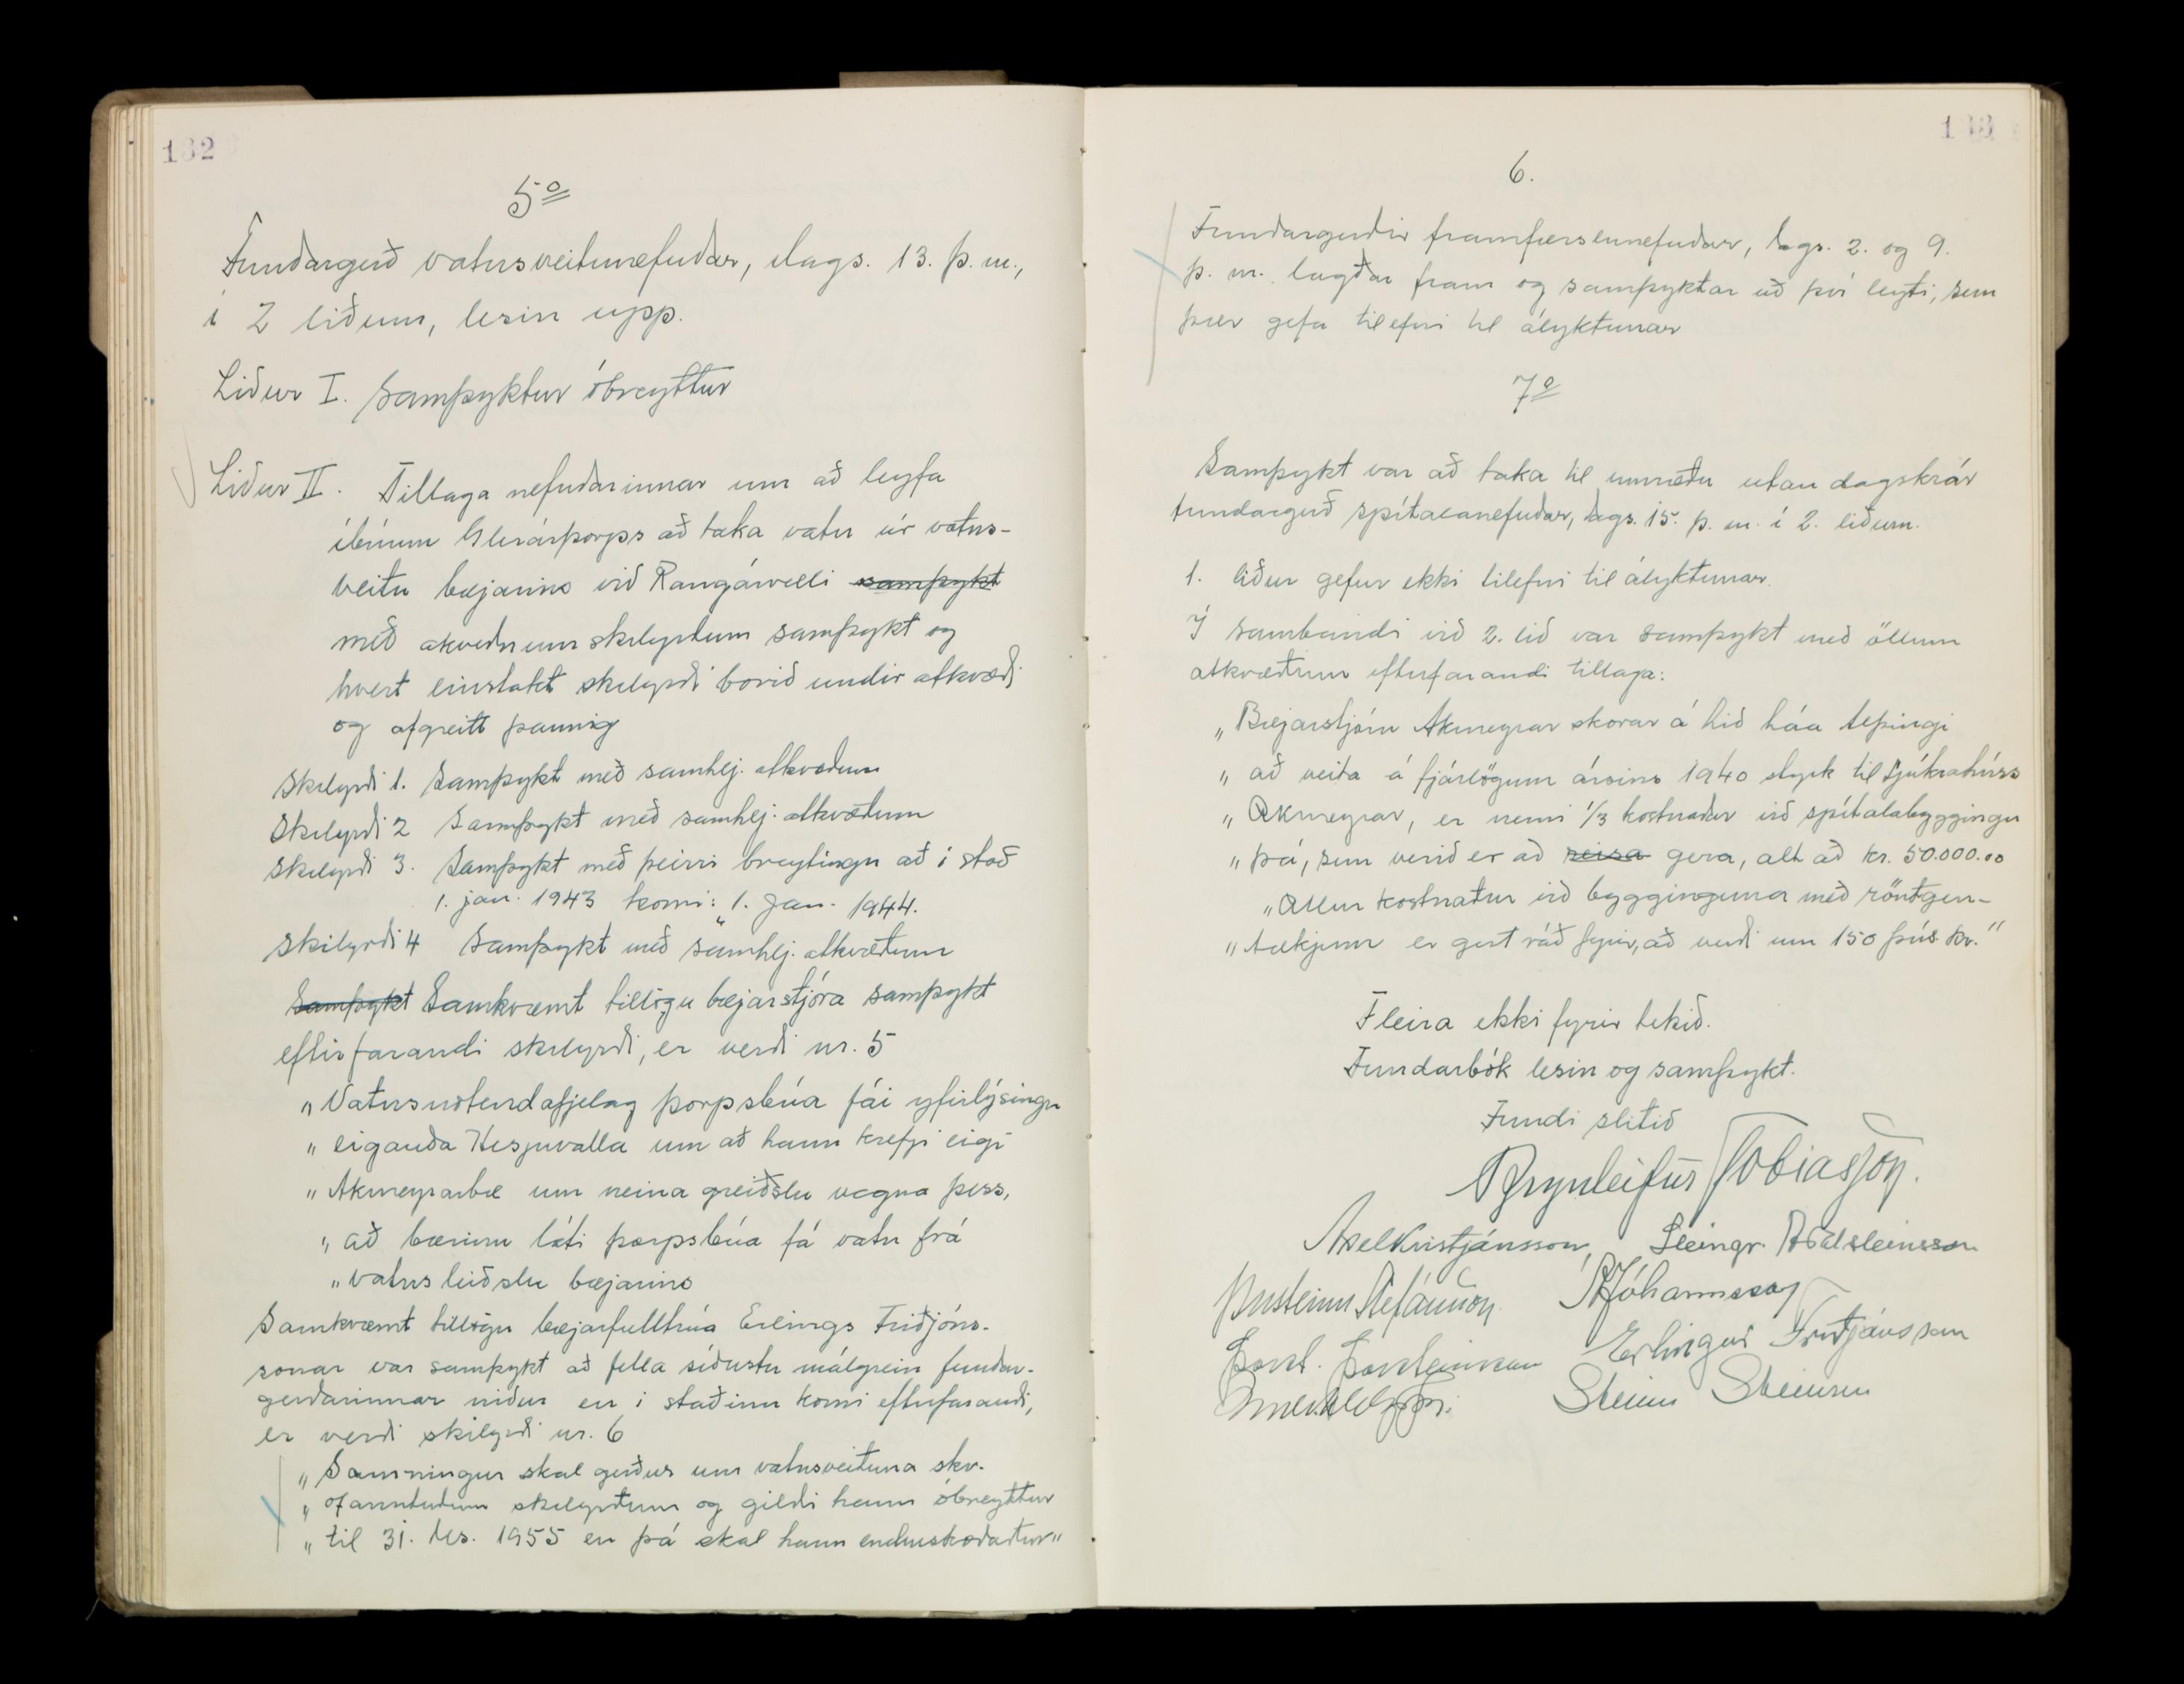 132
5º
Fundargerð vatnsveitunefndar, dags. 13. þ. m.,
í 2 liðum, lesin upp.
Liður I. Samþyktur óbreyttur
Liður II. Tillaga nefndarinnar um að leyfa
íbúum Glerárþorps að taka vatn úr vatns-
veitu bæjarins við Rangárvelli samþykt
með ákveðnum skilyrðum samþykt og
hvert einstakt skilyrði borið undir atkvæði
og afgreitt þannig
Skilyrði 1. Samþykt með samhlj. atkvæðum
Skilyrði 2 Samþykt með samhlj. atkvæðum
Skilyrði 3. Samþykt með þeirri breytingu að í stað
1. jan. 1943 komi: "1. Jan. 1944.
Skilyrði 4 Samþykt með samhlj. atkvæðum
Samþykt Samkvæmt tillögu bæjarstjóra samþykt
eftirfarandi skilyrði, er verði nr. 5
„Vatnsnotendafjelag þorpsbúa fái yfirlýsingu
„ eiganda Hesjuvalla um að hann krefji eigi
„ Akureyrarbæ um neina greiðslu vegna þess,
„ að bærinn láti þorpsbúa fá vatn frá
„ vatnsleiðslu bæjarins
Samkvæmt tillögu bæjarfulltrúa Erlings Friðjóns-
sonar var samþykt að fella síðustu málgrein fundar-
gerðarinnar niður en í staðinn komi eftirfarandi,
er verði skilyrði nr. 6
„ Samningur skal gerður um vatnsveituna skv.
„ ofanrituðum skilyrðum og gildi hann óbreyttur
„ til 31. des. 1955 en þá skal hann endurskoðaður"
133
6.
Fundargerðir framfærslunefndar, dags. 2. og 9.
þ. m. lagðar fram og samþyktar að því leyti, sem
þær gefa tilefni til ályktunar
7º
Samþykt var að taka til umræðu utan dagskrár
fundargerð spítalanefndar, dags. 15. þ. m. í 2. liðum.
1. liður gefur ekki tilefni til ályktunar.
Í sambandi við 2. lið var samþykt með öllum
atkvæðum eftirfarandi tillaga:
„ Bæjarstjórn Akureyrar skorar á hið háa Alþingi
„ að veita á fjárlögum ársins 1940 styrk til Sjúkrahúss
„ Akureyrar, er nemi 1/3 kostnaðar við spítalabyggingu
„ þá, sem verið er að reisa gera, alt að kr. 50.000.00
„ Allur kostnaður við bygginguna með röntgen-
„ tækjum er gert ráð fyrir, að verði um 150 þús. kr."
Fleira ekki fyrir tekið.
Fundarbók lesin og samþykt.
Fundi slitið
Brynleifur Tobiasson.
Axel Kristjánsson, Steingr. Aðalsteinsson
Þorsteinn Stefánsson Jóhannsson
Þorst. Þorsteinsson Erlingur Friðjónsson
Steinn Steinsen